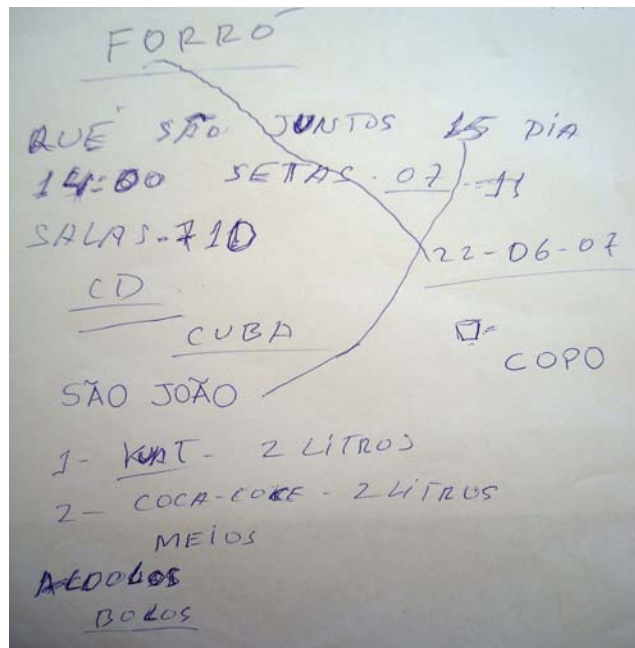 FORRÓ
QUE SÃO JUNTOS 15 DIA
14:00 SETTAS. 07 - 11
SALAS-710
22-06-07
CD
CUBA
COPO
SÃO JOÃO
1- KUAT - 2 LITROS
2- COCA-COKE - 2 LITROS
MEIOS
BOLOS